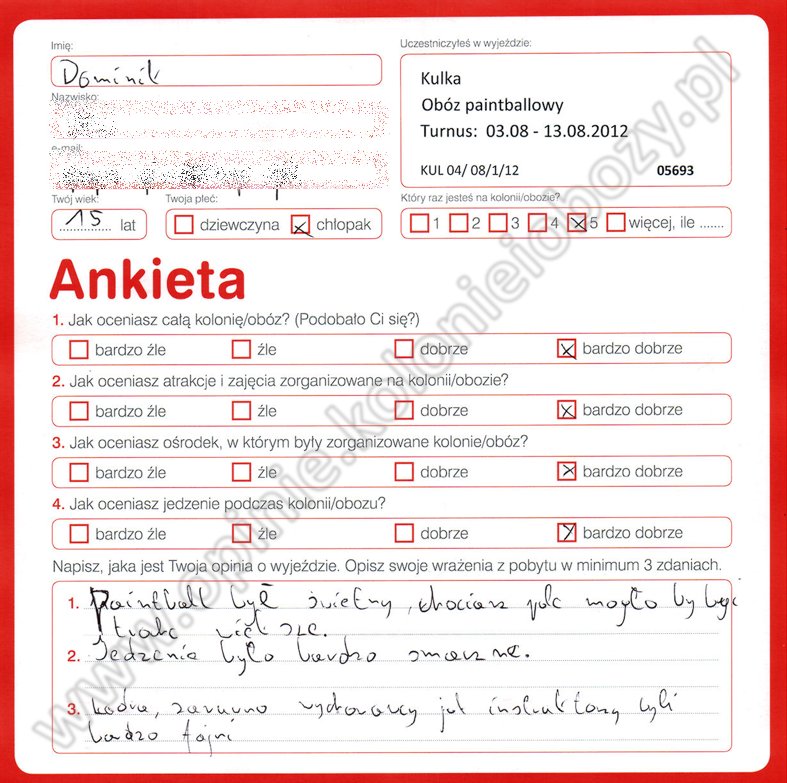 Imię:
Uczestniczyłeś w wyjeździe:
Dominik
Kulka
Obóz paintballowy
Turnus: 03.08 - 13.08.2012
KUL 04/ 08/1/12 05693
Nazwisko:
e-mail:
Twój wiek:
Twoja płeć:
Który raz jesteś na kolonii/obozie?
15 lat
dziewczyna chłopak
1 2 3 4 5 więcej, ile .......
Ankieta
1. Jak oceniasz całą kolonię/obóz? (Podobało Ci się?)
bardzo źle źle dobrze bardzo dobrze
2. Jak oceniasz atrakcje i zajęcia zorganizowane na kolonii/obozie?
bardzo źle źle dobrze bardzo dobrze
3. Jak oceniasz ośrodek, w którym były zorganizowane kolonie/obóz?
bardzo źle źle dobrze bardzo dobrze
4. Jak oceniasz jedzenie podczas kolonii/obozu?
bardzo źle źle dobrze bardzo dobrze
Napisz, jaka jest Twoja opinia o wyjeździe. Opisz swoje wrażenia z pobytu w minimum 3 zdaniach.
1. Paintball był świetny, chociasz pole mogło by być
2. Jedzenie było bardzo smaczne.
3. kadra, zarówno wychowawcy jak instruktorzy byli
bardzo fajni
www.opinie.kolonieiobozy.pl